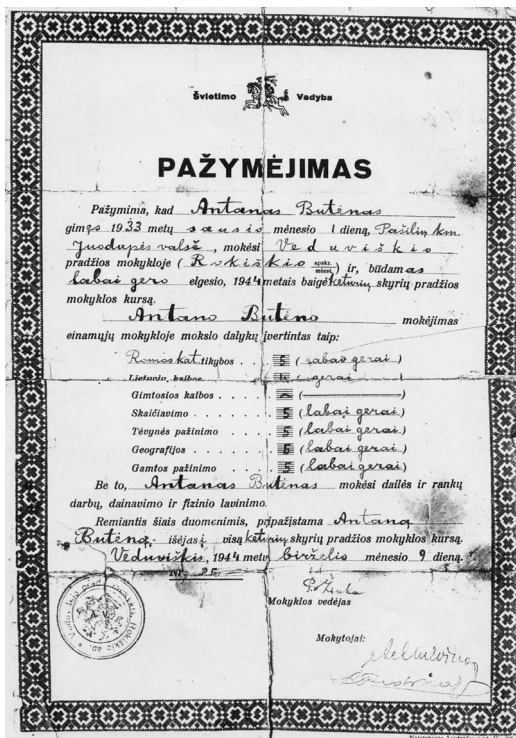 Švietimo Vadyba
PAŽYMĖJIMAS
Pažymima, kad Antanas Butėnas
gimęs 1933 metų sausio mėnesio 1 dieną, Pašilių km.
Juodupės valsč., mokėsi Veduviškio
pradžios mokykloje (Rokiškio apskr. miest.) ir, būdamas
labai gero elgesio, 1944 metais baigė keturių skyrių pradžios
mokyklos kursą.
Antano Butėno mokėjimas
einamųjų mokykloje mokslo dalykų įvertintas taip:
Romos kat. tikybos . . 5 (labai gerai)
Lietuvių kalbos gerai
Gimtosios kalbos . . . . (
Skaičiavimo . . . . . . . 5 (labai gerai)
Tėvynės pažinimo . . . . 5 (labai gerai)
Geografijos . . . . . . 5 (labai gerai)
Gamtos pažinimo . . . . 5 (labai gerai)
Be to, Antanas Butėnas mokėsi dailės ir rankų
darbų, dainavimo ir fizinio lavinimo.
Remiantis šiais duomenimis, pripažįstama Antaną
Butėną išėjusį visą keturių skyrių pradžios mokyklos kursą.
Veduviškis, 1944 metų birželio mėnesio 9 dieną.
Nr. 25
Mokyklos vedėjas
Mokytojai: